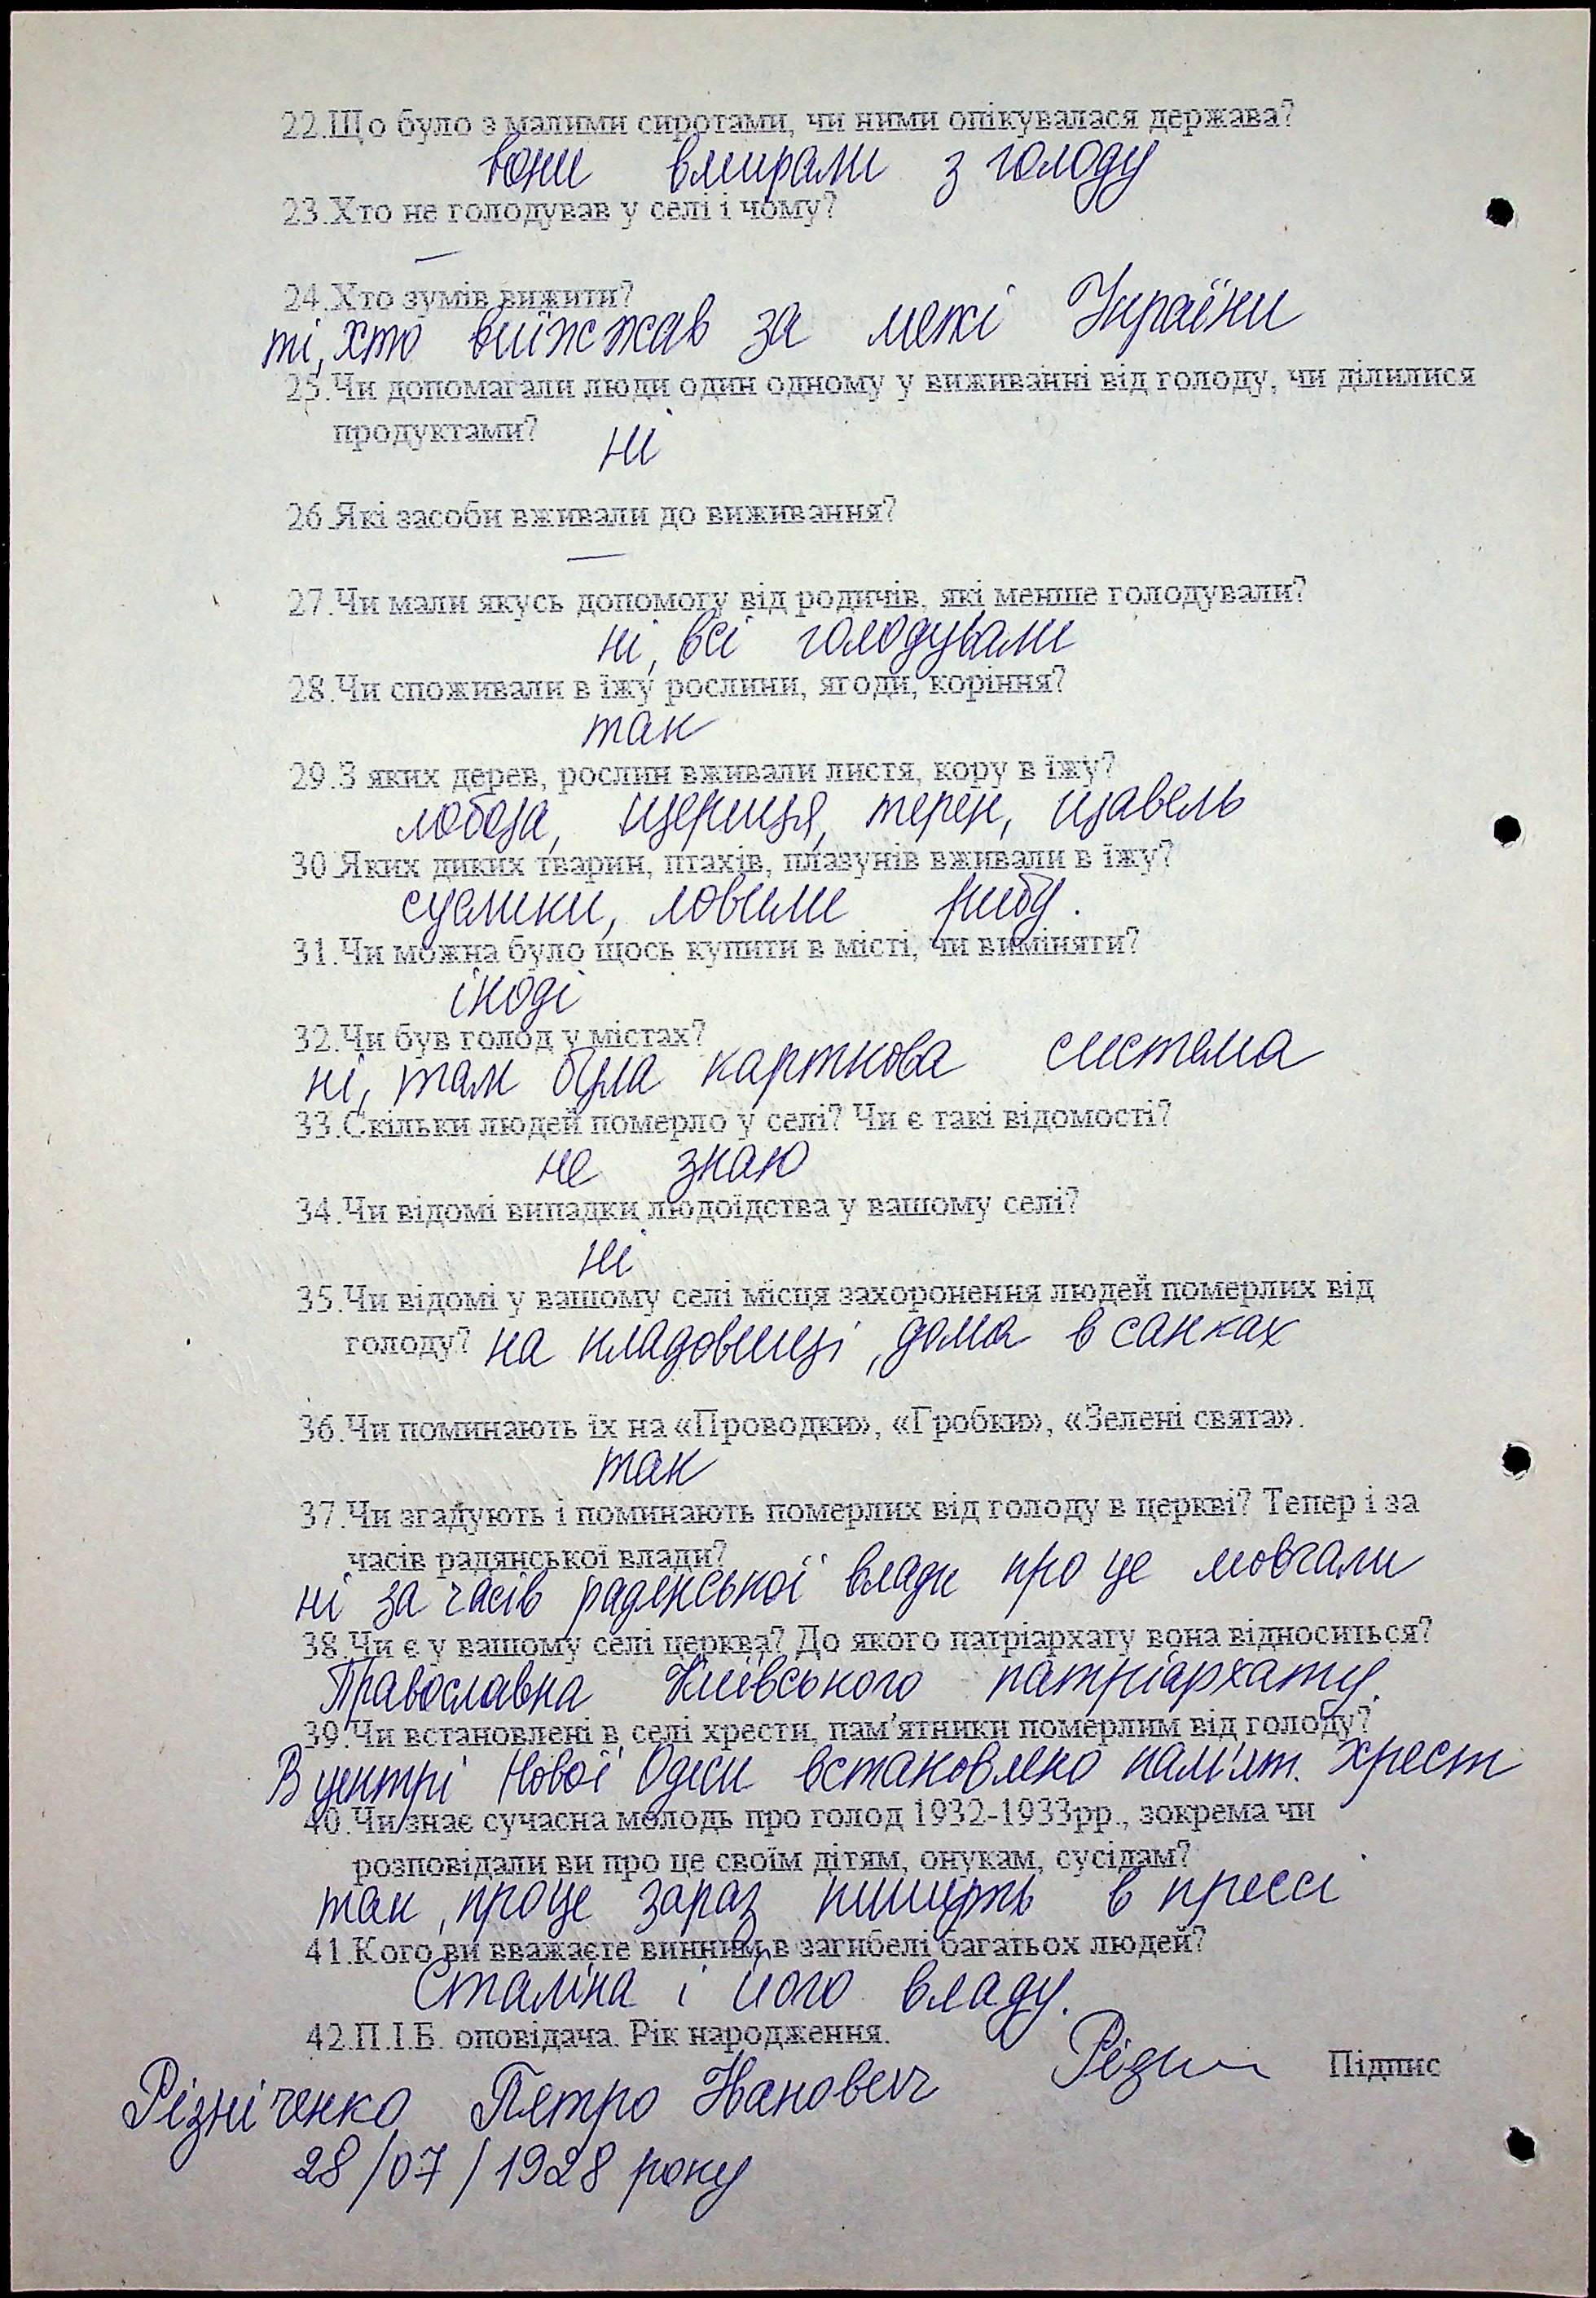 22.Що було з малими сиротами, чи ними опікувалася держава?
вони вмирали з голоду
23.Хто не голодував у селі і чому?
—
24.Хто зумів вижити?
ті, хто виїжжав за межі України
25.Чи допомагали люди один одному у виживанні від голоду, чи ділилися
продуктами? ні
26.Які засоби вживали до виживання?
—
27.Чи мали якусь допомогу від родичів, які менше голодували?
ні, всі голодували
28.Чи споживали в їжу рослини, ягоди, коріння?
так
29.З яких дерев, рослин вживали листя, кору в їжу?
лобода, щериця, терен, щавель
30.Яких диких тварин, птахів, плазунів вживали в їжу?
суслики, ловили рибу.
31.Чи можна було щось купити в місті, чи виміняти?
іноді
32.Чи був голод у містах?
ні, там була карткова система
33.Скільки людей померло у селі? Чи є такі відомості?
не знаю
34.Чи відомі випадки людоїдства у вашому селі?
ні
35.Чи відомі у вашому селі місця захоронення людей померлих від
голоду? на кладовищі, дома в санках
36.Чи поминають їх на «Проводки», «Гробки», «Зелені свята».
так
37.Чи згадують і поминають померлих від голоду в церкві? Тепер і за
часів радянської влади?
ні за часів радянської влади про це мовчали
38.Чи є у вашому селі церква? До якого патріархату вона відноситься?
Православна Київського патріархату.
39.Чи встановлені в селі хрести, пам’ятники померлим від голоду?
В центрі Нової Одеси встановлено пам'ят. хрест
40.Чи знає сучасна молодь про голод 1932-1933рр., зокрема чи
розповідали ви про це своїм дітям, онукам, сусідам?
так, про це зараз пишуть в прессі
41.Кого ви вважаєте винним в загибелі багатьох людей?
Сталіна і його владу.
42.П.І.Б. оповідача. Рік народження.
Підпис
Різніченко Петро Іванович
28/07/1928 року